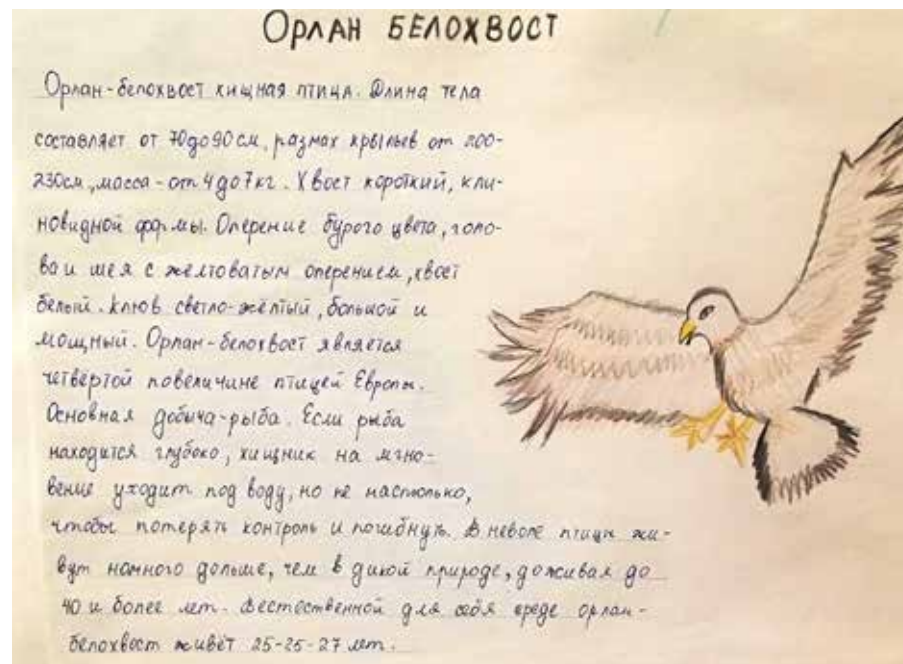 ОРЛАН БЕЛОХВОСТ
Орлан-белохвост хищная птица. Длина тела
составляет от 70 до 90 см, размах крыльев от 200-
230см, масса - от 4 до 7 кг. Хвост короткий, кли-
новидной формы. Оперение бурого цвета, голо-
ва и шея с желтоватым оперением, хвост
белый. Клюв светло-жёлтый, большой и
мощный. Орлан-белохвост является
четвёртой повеличине птицей Европы.
Основная добыча-рыба. Если рыба
находится глубоко, хищник на мгно-
вение уходит под воду, но не настолько,
чтобы потерять контроль и погибнуть. В неволе птицы жи-
вут намного дольше, чем в дикой природе, доживая до
40 и более лет. Вестественной для себя среде орлан-
белохвост живёт 25-25-27 лет.